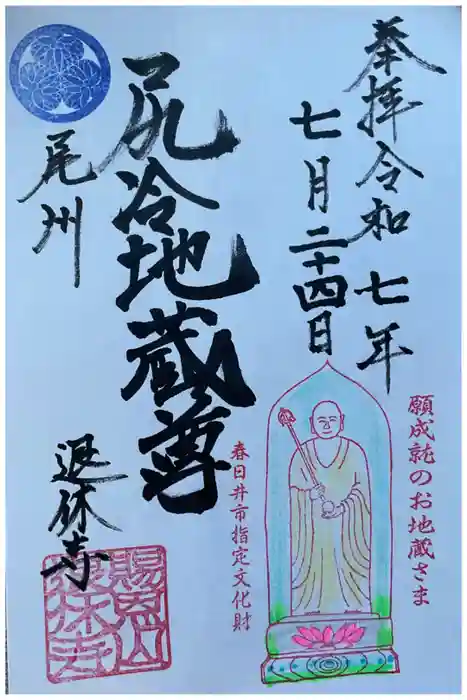 奉拝令和七年
七月二十四日
願成就のお地蔵さま
春日井市指定文化財
尻冷地蔵尊
尾州
退休寺
賜恩山
退休寺